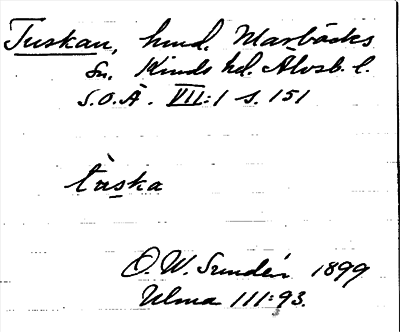 Tuskan, hmd. Marbäcks
sn. Kinds hd. Älvsb. l.
S.O.Ä. VII:1 s. 151
tùska
O. W. Sundén 1899
Ulma 111:93.